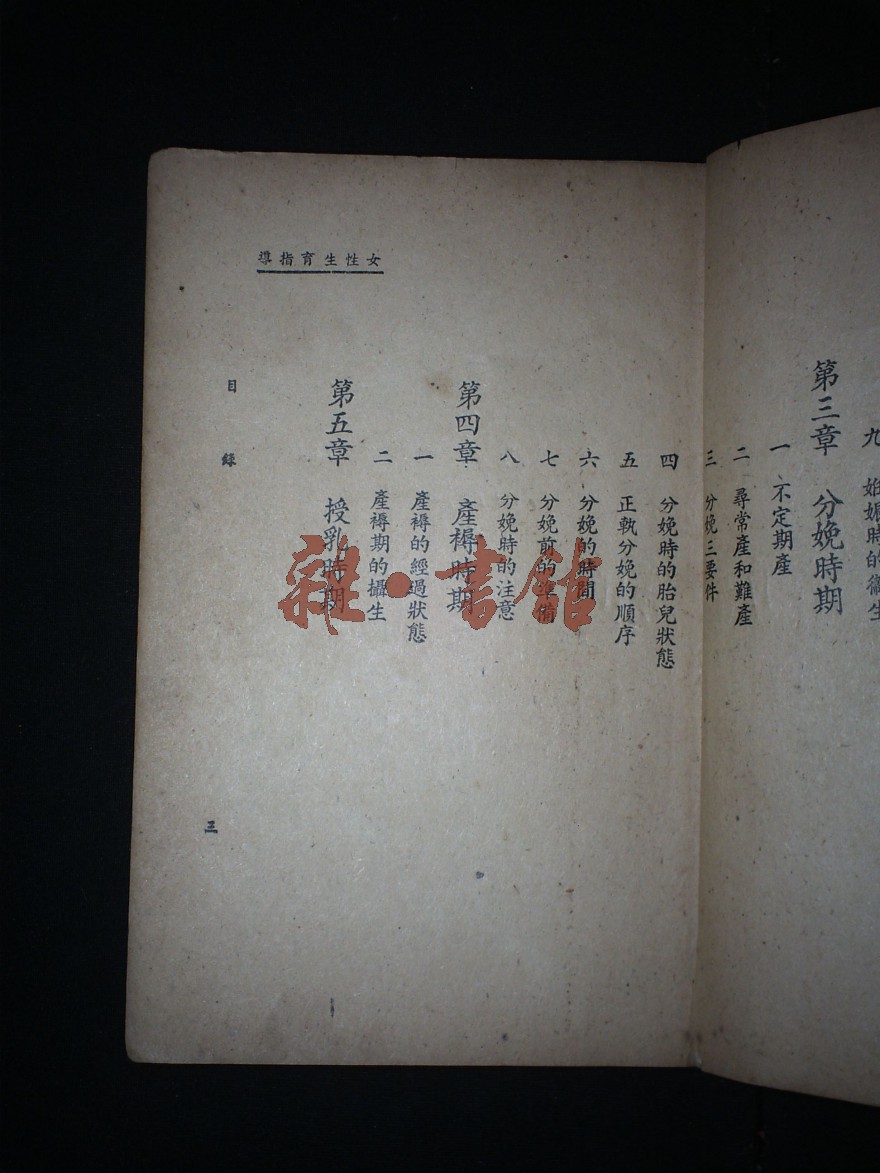 女性生育指導
九 妊娠時的衞生
第三章 分娩時期
一 不定期產
二 尋常產和難產
三 分娩三要件
四 分娩時的胎兒狀態
五 正執分娩的順序
六 分娩的時間
七 分娩前的準備
八 分娩時的注意
第四章 產褥時期
一 產褥的經過狀態
二 產褥期的攝生
第五章 授乳時期
目錄
三
雜·書館